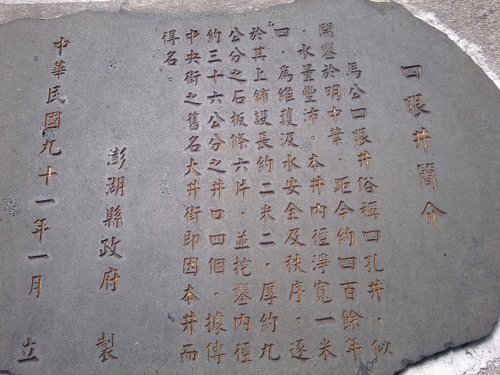 四眼井簡介
馬公四眼井俗稱四孔井，似
開鑿於明中葉，距今約四百餘年
，水量豐沛。本井內徑淨寬一米
四，為維護汲水安全及秩序，逐
於其上鋪設長約二米二，厚約九
公分之石板條六片，並挖鑿內徑
約三十六公分之井口四個，據傳
中央街之舊名大井街即因本井而
得名。
澎湖縣政府 製
中華民國九十一年一月 立